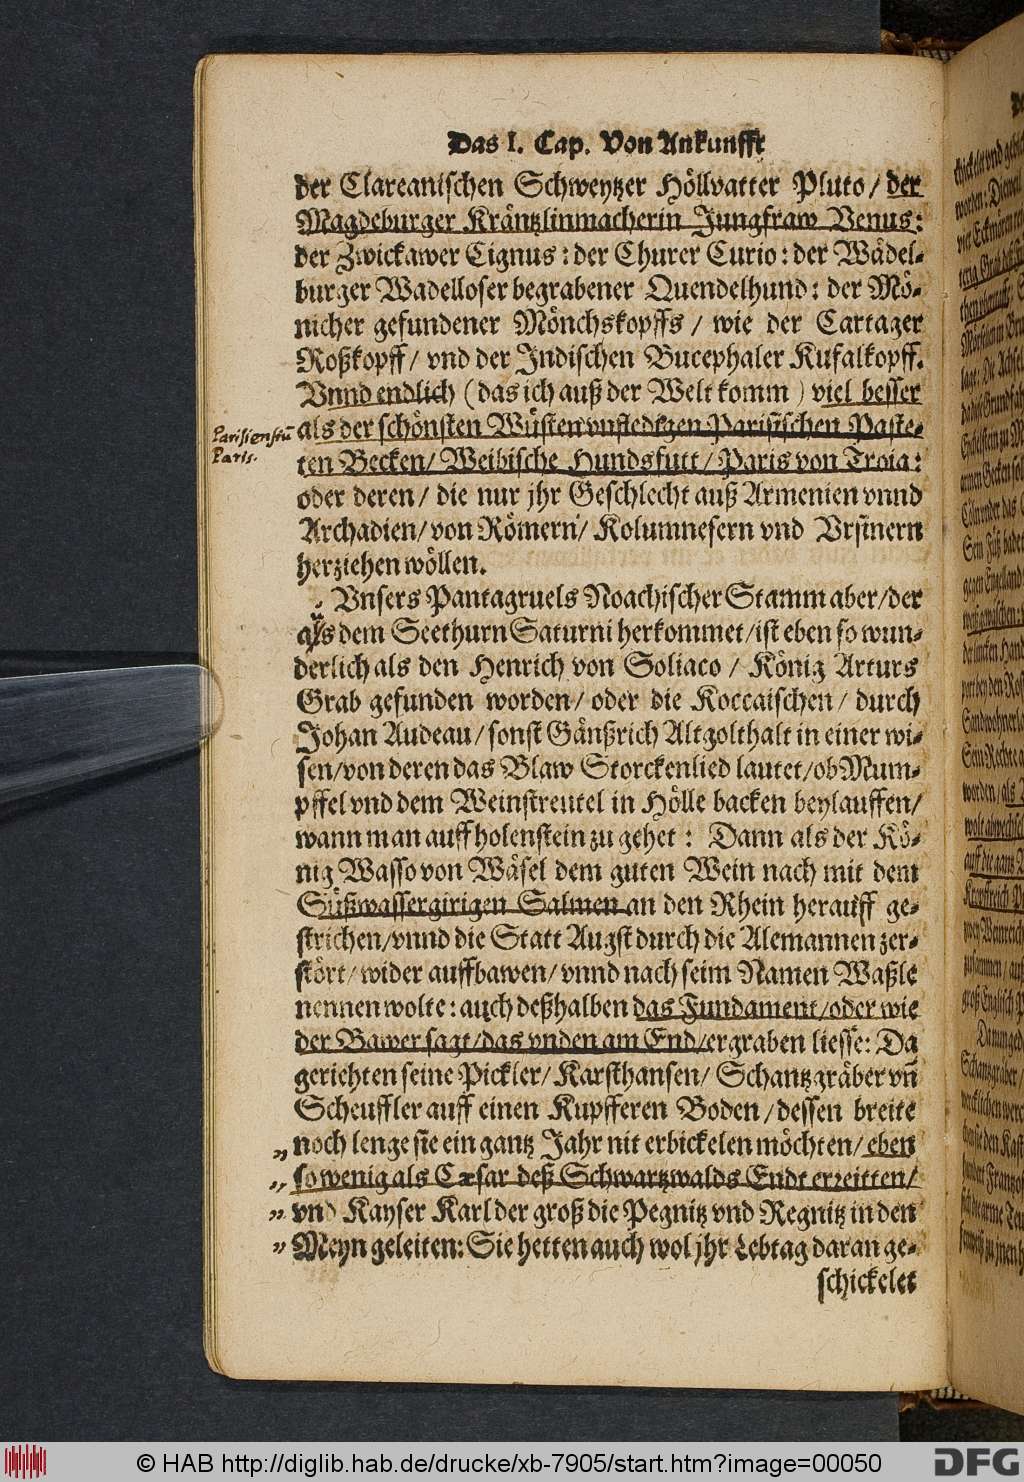 Das I. Cap. Von Ankunfft
der Clareanischen Schweytzer Höllvatter Pluto / der
Magdeburger Kräntzlinmacherin Jungfraw Venus:
der Zwickawer Cignus : der Churer Curio : der Wädel-
burger Wadelloser begrabener Quendelhund : der Mö-
nicher gefundener Mönchskopffs / wie der Cartager
Roßkopff / vnd der Indischen Bucephaler Kufalkopff.
Vnnd endlich ( das ich auß der Welt komm ) viel besser
als der schönsten Wüsten vnfledigen Parisischen Paste-
ten Becken / Weibische Hundsfutt / Paris von Troia:
oder deren / die nur jhr Geschlecht auß Armenien vnnd
Archadien / von Römern / Kolumnesern vnd Vrsinern
herziehen wöllen.
Vnsers Pantagruels Noachischer Stamm aber / der
als dem Seethurn Saturni herkommet / ist eben so wun-
derlich als den Henrich von Soliaco / König Arturs
Grab gefunden worden / oder die Koccaischen / durch
Johan Audeau / sonst Gänßrich Altgolthalt in einer wi-
sen / von deren das Blaw Storckenlied lautet / ob Mum-
pffel vnd dem Weinstreutel in Hölle backen beylauffen /
wann man auff holenstein zu gehet : Dann als der Kö-
nig Wasso von Wäsel dem guten Wein nach mit dem
Süßwassergirigen Salmen an den Rhein herauff ge-
strichen / vnnd die Statt Augst durch die Alemannen zer-
stört / wider auffbawen / vnnd nach seim Namen Waßle
nennen wolte : auch deßhalben das Fundament / oder wie
der Bawer sagt / das vnden am End / ergraben liesse : Da
geriehten seine Pickler / Karsthansen / Schantzgräber vn̄
Scheuffler auff einen Kupfferen Boden / dessen breite
„ noch lenge sie ein gantz Jahr nit erbickelen möchten / eben
„ so wenig als Cæsar deß Schwartzwalds Endt erreitten /
„ vnd Kayser Karl der groß die Pegnitz vnd Regnitz in den
„ Meyn geleiten : Sie hetten auch wol jhr Lebtag daran ge-
schickelet
Paris.
© HAB http://diglib.hab.de/drucke/xb-7905/start.htm?image=00050
DFG